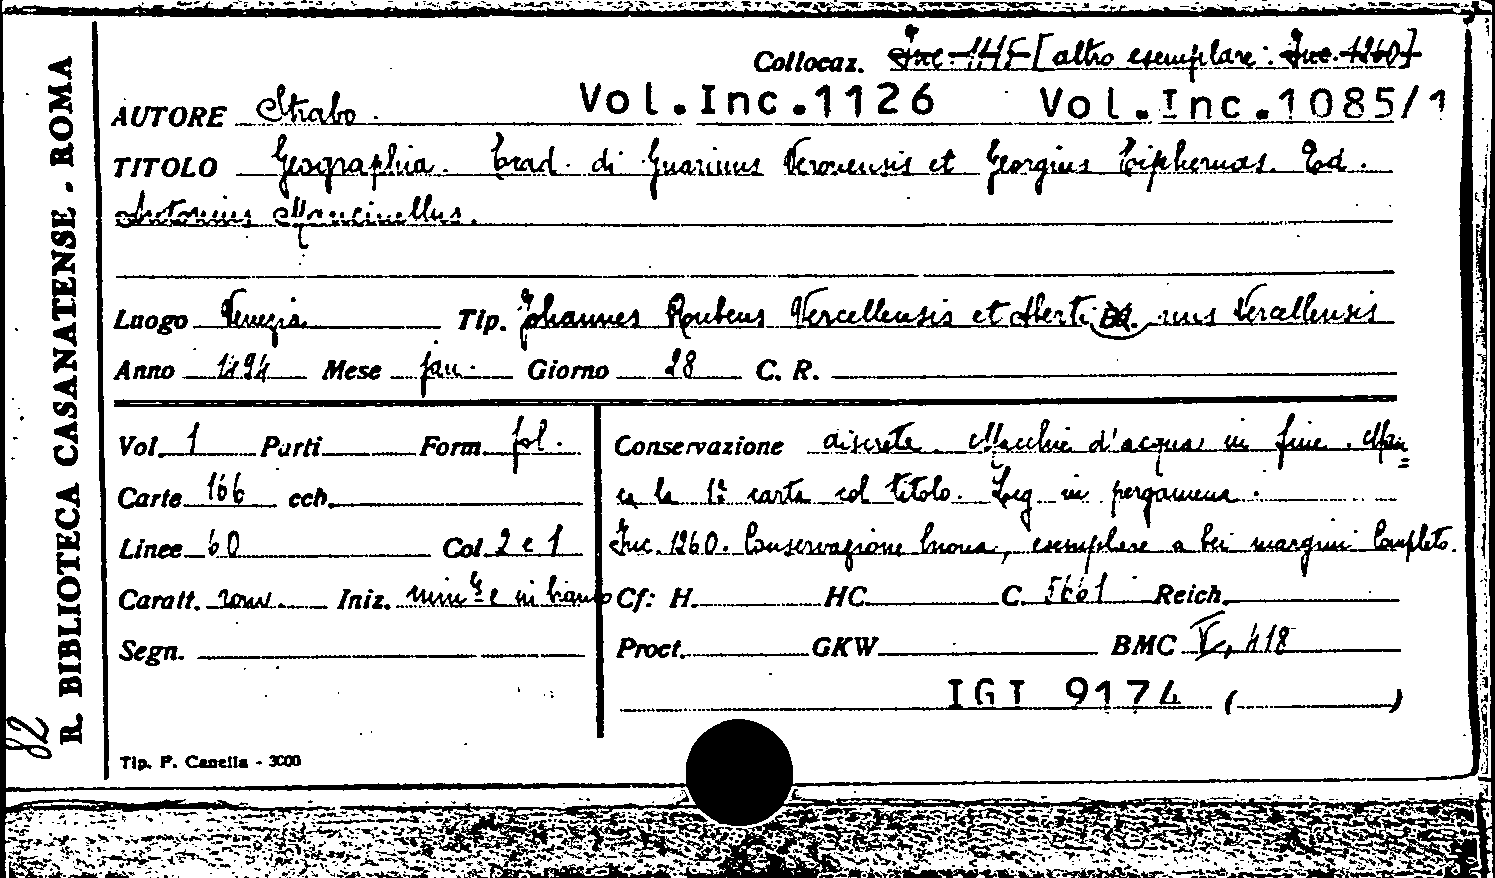 Collocaz. Inc. 1145 [altro esemplare: Inc. 1260]
AUTORE Strabo. Vol.Inc.1126 Vol.Inc.1085/1
TITOLO Geographia. Trad. di Guarinus Veronensis et Georgius Tiphernas. Ed.
Antonius Mancinellus.
Luogo Venezia Tip. Johannes Rubeus Vercellensis et Alberti nus Vercellensis
Anno 1494 Mese jan. Giorno 28 C. R.
Vol. 1 Parti Form. fol.
Carte 166 cch.
Linee 60 Col. 2 e 1
Caratt. rom. Iniz. min.le e in bianco
Segn.
Conservazione discreta. Macchie d'acqua in fine. Man=
ca la 1ª carta col titolo. Leg. in pergamena.
Inc. 1260. Conservazione buona, esemplare a bei margini. Completo.
Cf: H. HC. C. 5661 Reich.
Proct. GKW BMC V, 418
IGI 9174 ( )
R. BIBLIOTECA CASANATENSE - ROMA
82
Tip. P. Canella - 3000